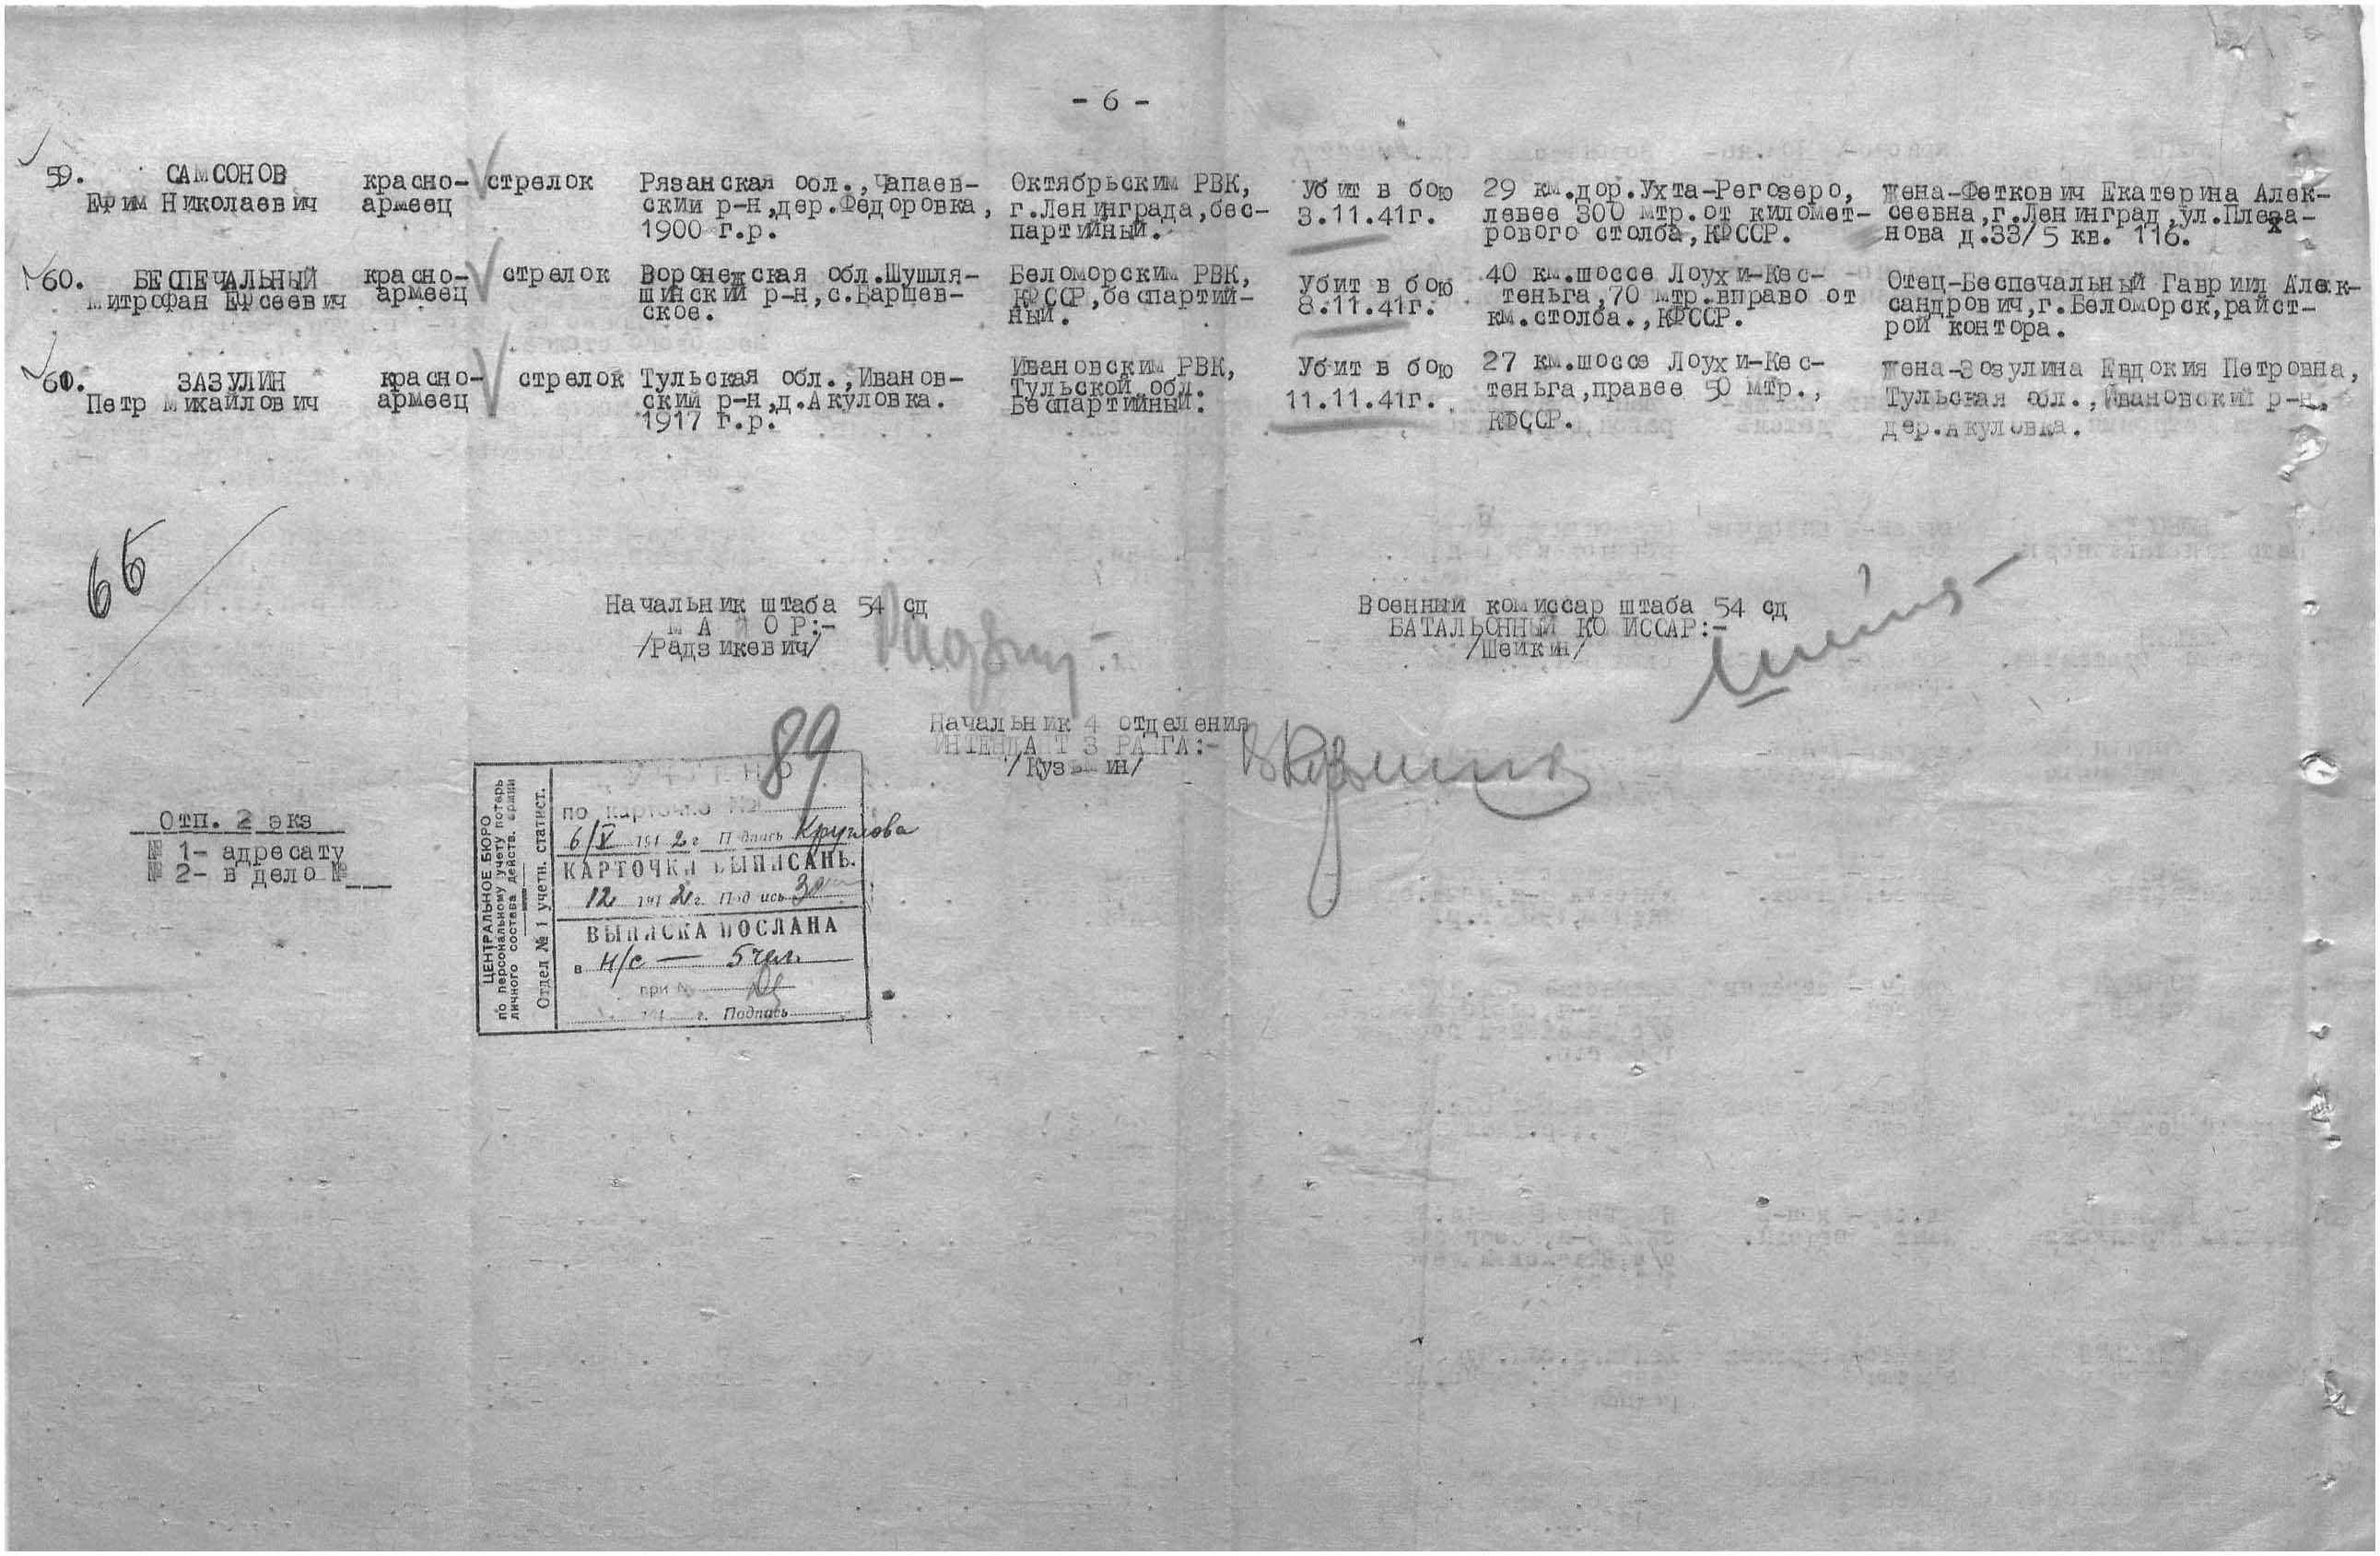 - 6 -
59. САМСОНОВ
Ефим Николаевич
красно-
армеец
стрелок
Рязанская обл., Чапаев-
ский р-н, дер. Федоровка,
1900 г.р.
Октябрьским РВК,
г. Ленинграда, бес-
партийный.
Убит в бою
3.11.41г.
29 км. дор. Ухта-Регозеро,
левее 300 мтр. от километ-
рового столба, КФССР.
жена-Феткович Екатерина Алек-
сеевна, г. Ленинград, ул. Плеха-
нова д. 33/5 кв. 116.
60. БЕСПЕЧАЛЬНЫЙ
Митрофан Ефсеевич
красно-
армеец
стрелок
Воронежская обл. Шушля-
шинский р-н, с. Варшев-
ское.
Беломорским РВК,
КФССР, беспартий-
ный.
Убит в бою
8.11.41г.
40 км. шоссе Лоухи-Кес-
теньга, 70 мтр. вправо от
км. столба., КФССР.
Отец-Беспечальный Гавриил Алек-
сандрович, г. Беломорск, райст-
рой контора.
61. ЗАЗУЛИН
Петр Михайлович
красно-
армеец
стрелок
Тульская обл., Иванов-
ский р-н, д. Акуловка.
1917 г.р.
Ивановским РВК,
Тульской обл.
Беспартийный.
Убит в бою
11.11.41г.
27 км. шоссе Лоухи-Кес-
теньга, правее 50 мтр.,
КФССР.
жена-Зозулина Евдокия Петровна,
Тульская обл., Ивановский р-н,
дер. Акуловка.
Начальник штаба 54 сд
МАЙОР:-
/Радзикевич/
Военный комиссар штаба 54 сд
БАТАЛЬОННЫЙ КОМИССАР:-
/Шейкин/
Начальник 4 отделения
ИНТЕНДАНТ 3 РАНГА:-
/Кузьмин/
Отп. 2 экз
№ 1- адресату
№ 2- в дело №
ЦЕНТРАЛЬНОЕ БЮРО
по персональному учету потерь
личного состава действ. армии
Отдел № 1 учетн. статист.
УЧТЕНО 89
по карточке №
6/V 1942 г. Подпись Круглова
КАРТОЧКИ ВЫПИСАНЫ.
12 1942 г. Подпись
ВЫПИСКА ПОСЛАНА
в н/с — 5 чел.
при №
194 г. Подпись